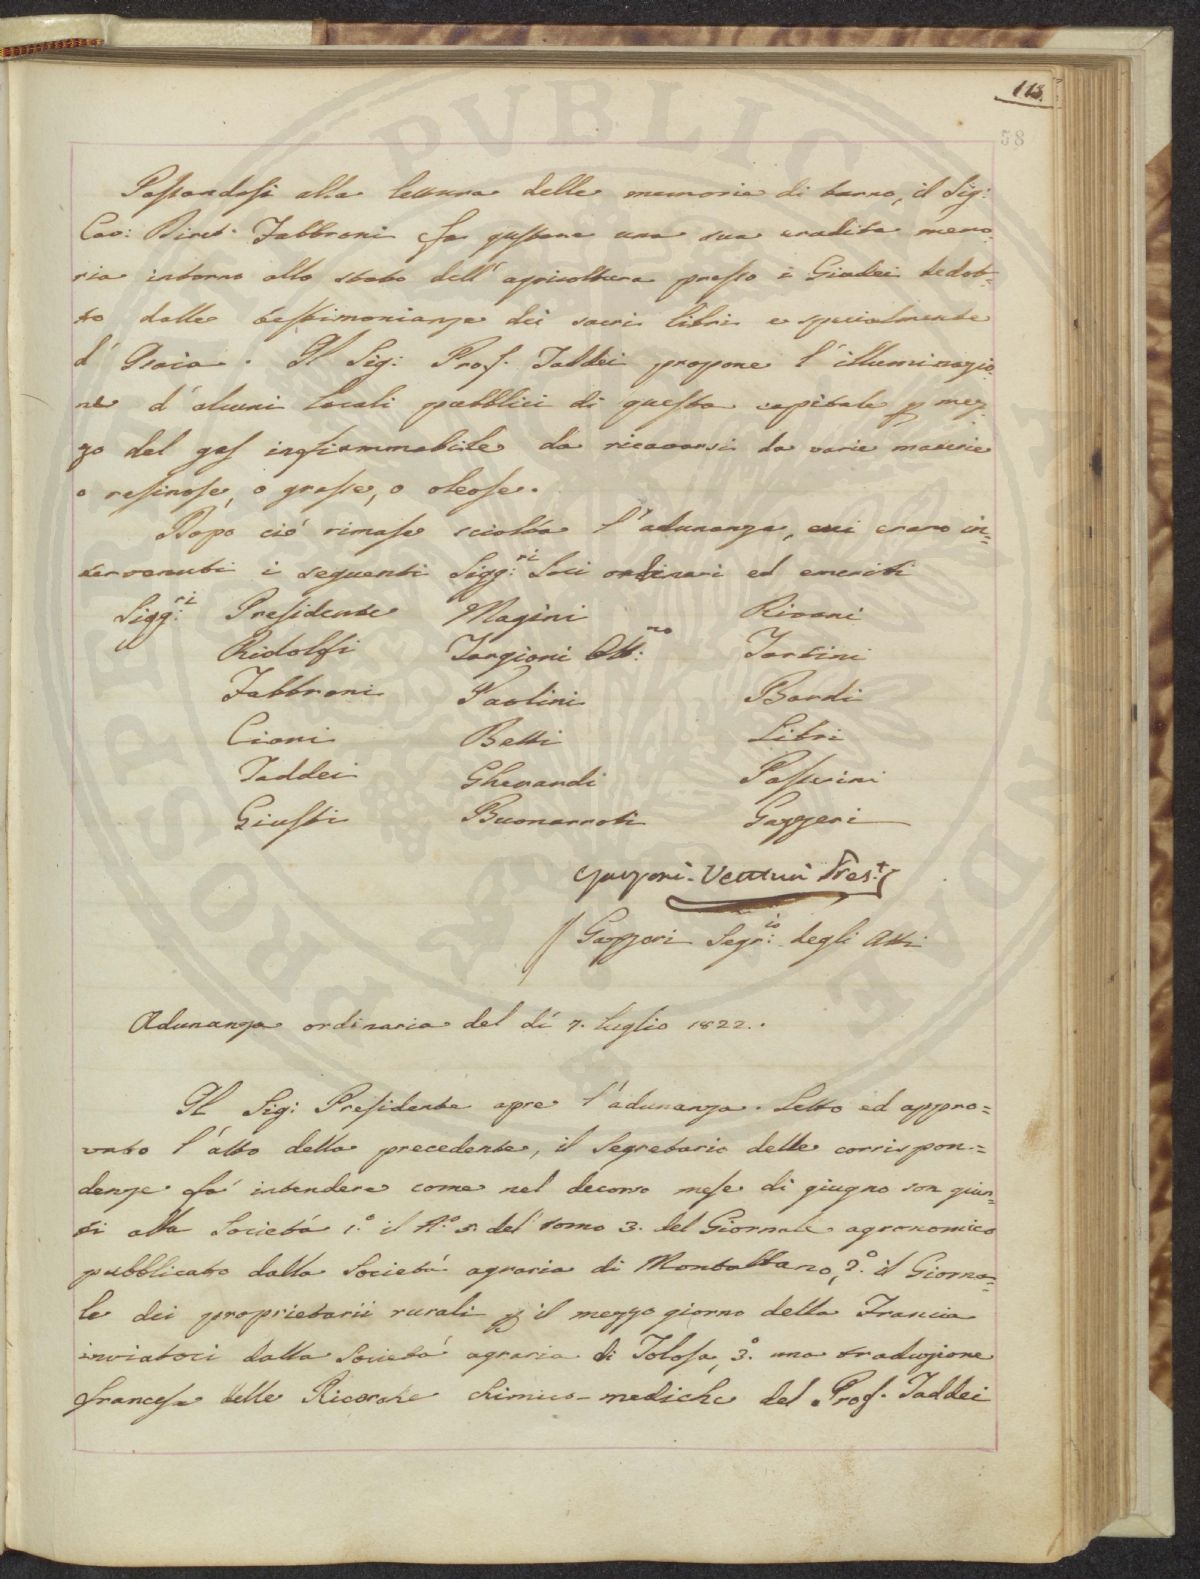 113.
58
Passandosi alla lettura delle memorie di turno, il Sig:
Cav: Diret. Fabbroni fa gustare una sua erudita memo
ria intorno allo stato dell' agricoltura presso i Giudei dedot=
to dalle testimonianze dei sacri libri e specialmente
d' Isaia. Il Sig: Prof. Taddei propone l' illuminazio
ne d' alcuni locali pubblici di questa capitale p mez=
zo del gas infiammabile da ricavarsi da varie materie
o resinose, o grasse, o oleose.
Dopo ciò rimase sciolta l' adunanza, cui erano in=
tervenuti i seguenti Sigg:ri Soci ordinari ed emeriti
Sigg:ri Presidente Magini Rivani
Ridolfi Targioni Ott:no Tartini
Fabbroni Paolini Bardi
Cioni Betti Libri
Taddei Gherardi Passerini
Giusti Buonarroti Gazzeri
Garzoni-Venturi Pres.te
Gazzeri Segr:io degli Atti
Adunanza ordinaria del dì 7. luglio 1822.
Il Sig: Presidente apre l' adunanza. Letto ed appro=
vato l' atto della precedente, il Segretario delle corrispon=
denze fa' intendere come nel decorso mese di giugno son giun
ti alla Società 1.° il N.° 5. del tomo 3. del Giornale agronomico
pubblicato dalla Società agraria di Montalbano, 2.° il Giorna=
le dei proprietarii rurali p il mezzo giorno della Francia
inviatoci dalla Società agraria di Tolosa, 3.° una traduzione
francese delle Ricerche chimico-mediche del Prof. Taddei
PROSPERITATI PUBLICAE AUGENDAE